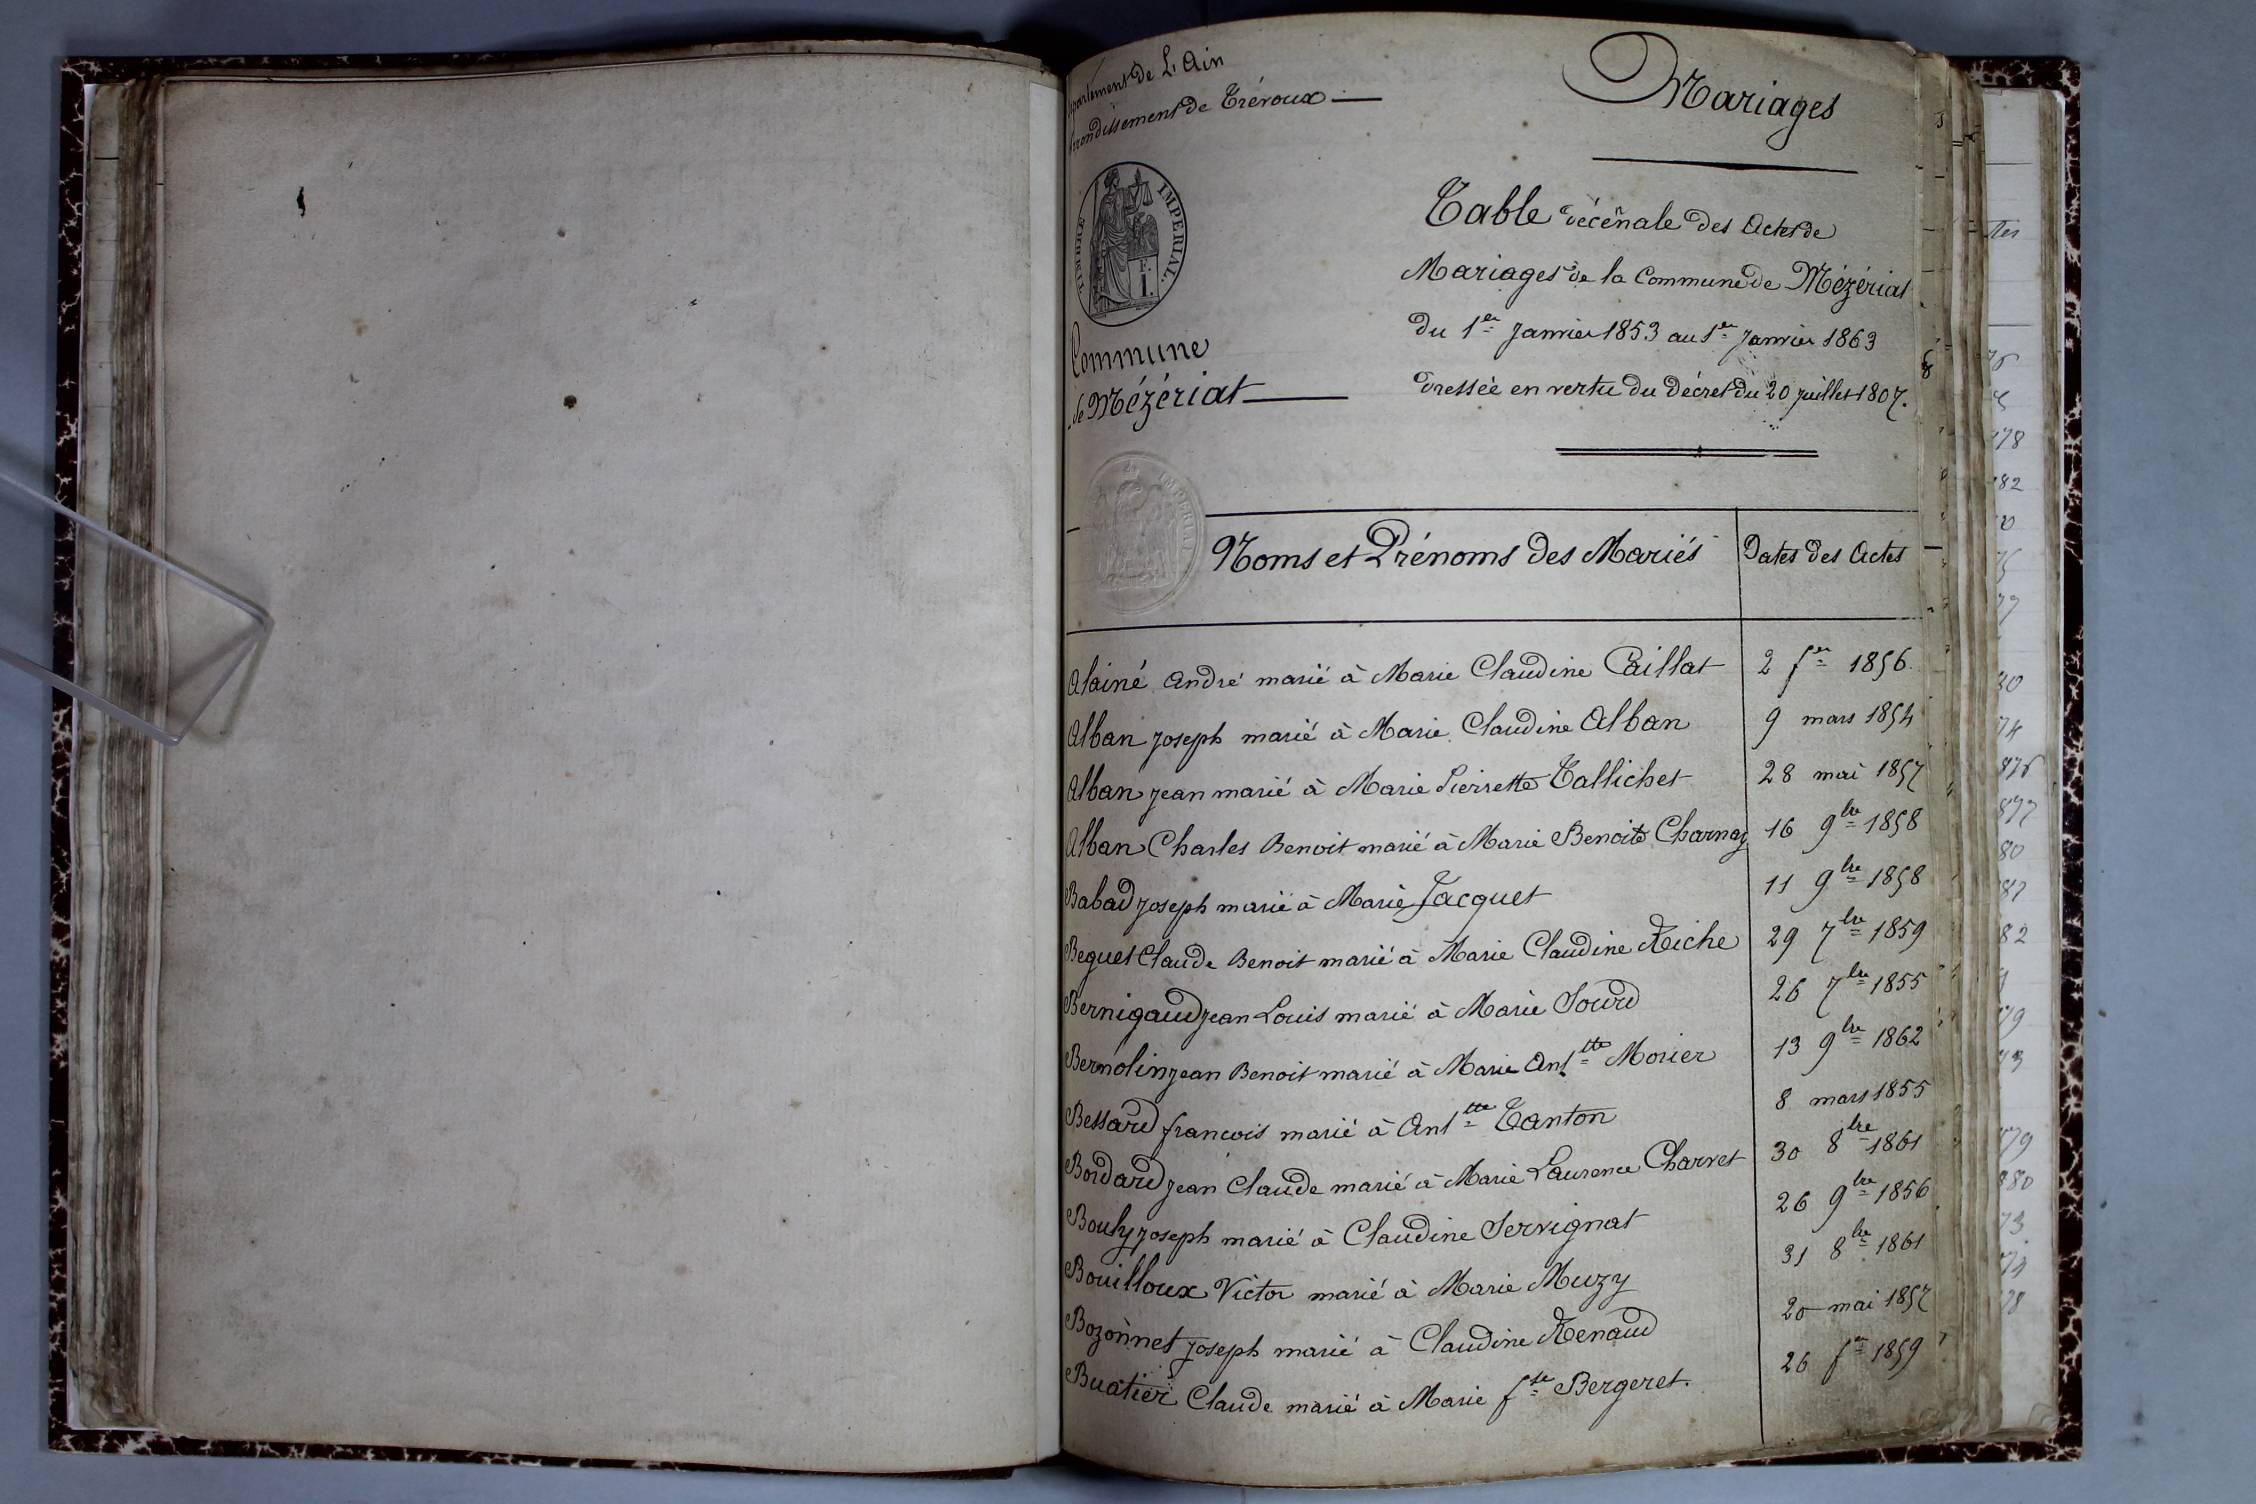 partement de L'Ain
rrondissement de Trévoux
Mariages
TIMBRE IMPERIAL.
F. I.
Table décenale des Actes de
Mariages de la Commune de Mézériat
du 1er Janvier 1853 au 1er Janvier 1863
dressée en vertu du décret du 20 juillet 1807.
Commune
de Mézériat
IMPERIAL
Noms et Prénoms des Mariés Dates des Actes
Alainé André marié à Marie Claudine Caillat 2 fer 1856.
Alban Joseph marié à Marie Claudine Alban 9 mars 1854
Alban Jean marié à Marie Pierrette Tallichet 28 mai 1857
Alban Charles Benoit marié à Marie Benoite Charnay 16 9bre 1858
Babad Joseph marié à Marie Jacquet 11 9bre 1858
Beguet Claude Benoit marié à Marie Claudine Riche 29 7bre 1859
Bernigaud Jean Louis marié à Marie Sourd 26 7bre 1855
Bernolin Jean Benoit marié à Marie Antte Morier 13 9bre 1862
Bessard françois marié à Antte Tanton 8 mars 1855
Bordard Jean Claude marié à Marie Laurence Charvet 30 8bre 1861
Bouly Joseph marié à Claudine Servignat 26 9bre 1856
Bouilloux Victor marié à Marie Muzy 31 8bre 1861
Bozonnet Joseph marié à Claudine Renaud 20 mai 1857
Buatier Claude marié à Marie fse Bergeret. 26 fer 1859